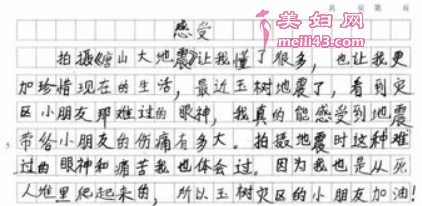 共 页 第 页
感受
拍摄《唐山大地震》让我懂了很多，也让我更
加珍惜现在的生活，最近玉树地震了，看到灾
区小朋友那难过的眼神，我真的能感受到地震
带给小朋友的伤痛有多大。拍摄地震时这种难
过的眼神和痛苦我也体会过。因为我也是从死
人堆里爬起来的，所以玉树灾区的小朋友加油！
5
美妇网
meili43.com